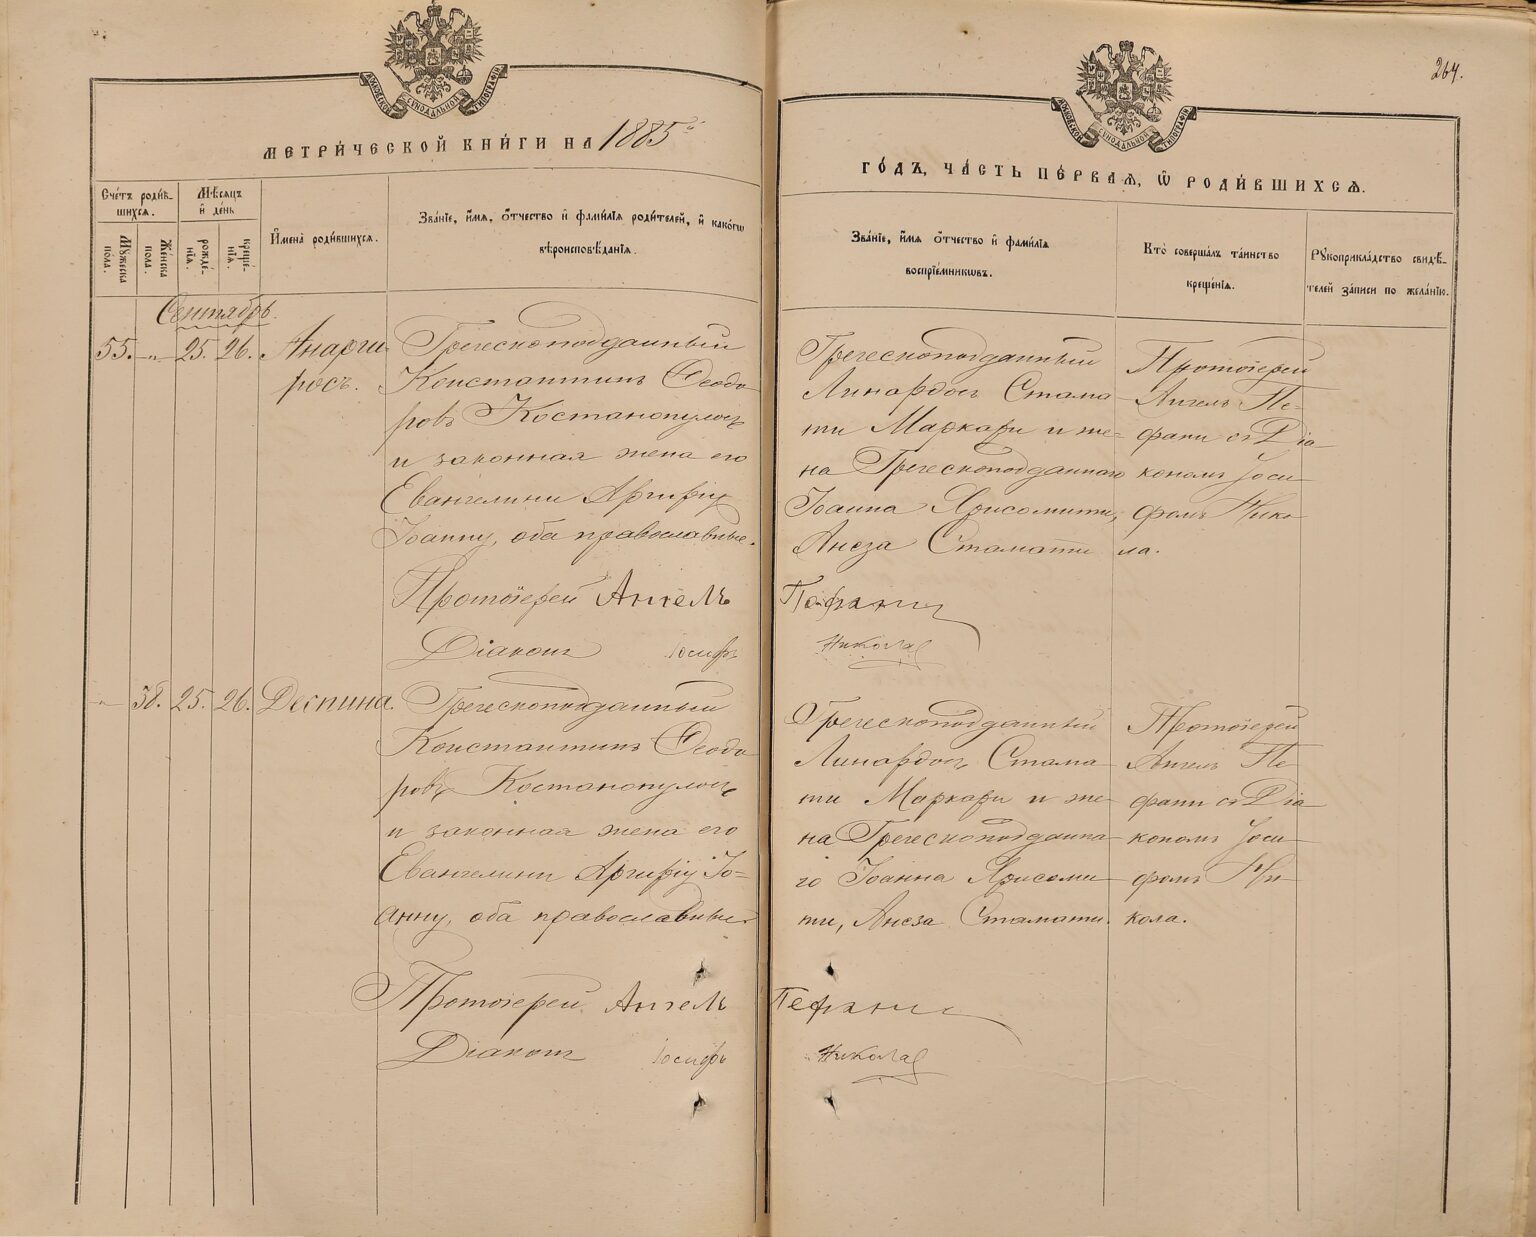 МОСКОВСКОЙ СѴНОДАЛЬНОЙ ТИПОГРАФІИ
МЕТРИ́ЧЕСКОЙ КНИ́ГИ НА 1885й
Сче́тъ роди́вшихся.
Мѣ́сяцъ и де́нь
Имена̀ роди́вшихся.
Зва́нїе, и́мя, о́тчество и фами́лїя роди́телей, и како́гѡ
вѣроисповѣ́данїя.
Мꙋ́жеска по́ла.
Же́нска по́ла.
рожде́нїя.
креще́нїя.
Сентябрь.
55. —„— 25. 26. Анарги-
росъ.
Греческоподданный
Константинъ Ѳеодо
ровъ Костанопулосъ
и законная жена его
Евангелини Аргиріу
Іоанну, оба православные.
Протоіерей Ангелъ
Діаконъ Іосифъ
—„— 38. 25. 26. Деспина.
Греческоподданный
Константинъ Ѳеодо
ровъ Костанопулосъ
и законная жена его
Евангелини Аргиріу Іо=
анну, оба православные.
Протоіерей Ангелъ
Діаконъ Іосифъ
264.
МОСКОВСКОЙ СѴНОДАЛЬНОЙ ТИПОГРАФІИ
ГО́ДЪ, ЧА́СТЬ ПЕ́РВАЯ, Ѡ РОДИ́ВШИХСЯ.
Зва́нїе, и́мя о́тчество и фами́лїя
воспрїе́мниковъ.
Кто̀ соверша́лъ та́инство
креще́нїя.
Рꙋкоприкла́дство свидѣ́-
телей за́писи по жела́нїю.
Греческоподданный
Линардосъ Стама
ти Маркари и же=
на Греческоподданного
Іоанна Хрисомити,
Анеза Стамати
Протоіерей
Ангелъ Пе-
фани съ Діа
кономъ Іоси
фомъ Нико
ла.
Пефани
Никола
Греческоподданный
Линардосъ Стама
ти Маркари и же-
на Греческоподданна
го Іоанна Хрисоми
ти, Анеза Стамати.
Протоіерей
Ангелъ Пе
фани съ Діа
кономъ Іоси
фомъ Ни-
кола.
Пефани
Никола